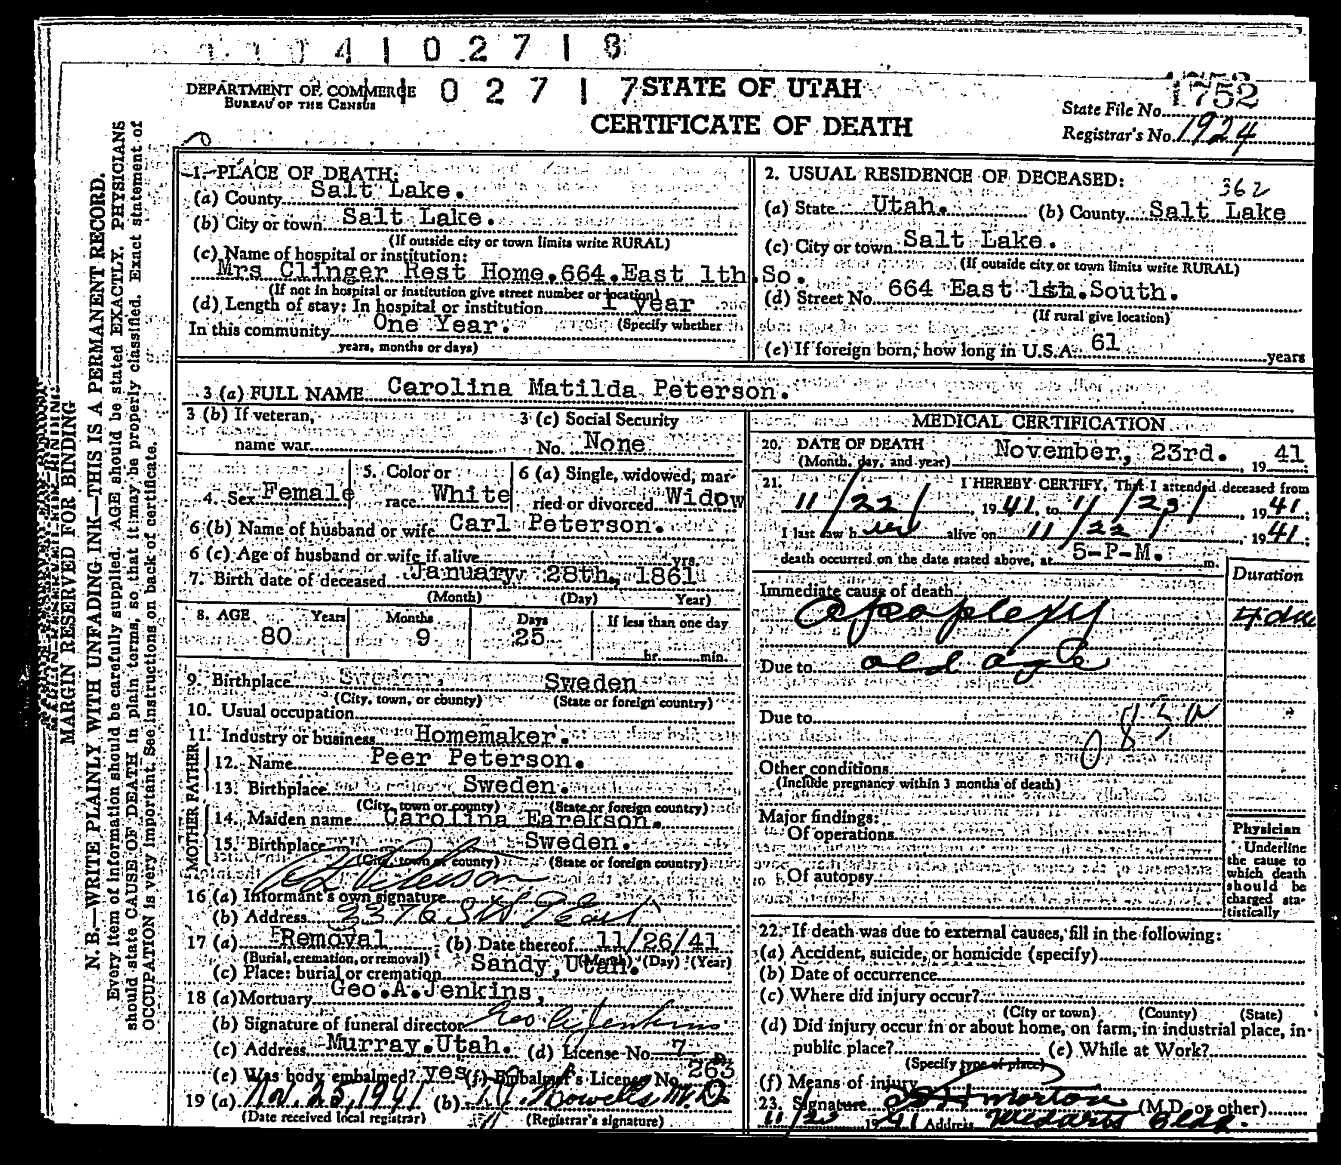 4 1 0 2 7 1 8
DEPARTMENT OF COMMERCE
BUREAU OF THE CENSUS
1 0 2 7 1 7
STATE OF UTAH
CERTIFICATE OF DEATH
1752
State File No.
Registrar's No. 1924
N. B.—WRITE PLAINLY WITH UNFADING INK—THIS IS A PERMANENT RECORD.
MARGIN RESERVED FOR BINDING
Every item of information should be carefully supplied. AGE should be stated EXACTLY. PHYSICIANS
should state CAUSE OF DEATH in plain terms, so that it may be properly classified. Exact statement of
OCCUPATION is very important. See instructions on back of certificate.
1. PLACE OF DEATH:
(a) County Salt Lake.
(b) City or town Salt Lake.
(If outside city or town limits write RURAL)
(c) Name of hospital or institution:
Mrs Clinger Rest Home.664.East 1th.So.
(If not in hospital or institution give street number or location)
(d) Length of stay: In hospital or institution 1 year
In this community One Year. (Specify whether
years, months or days)
2. USUAL RESIDENCE OF DECEASED:
362
(a) State Utah. (b) County Salt Lake
(c) City or town Salt Lake.
(If outside city or town limits write RURAL)
(d) Street No. 664 East 1st.South.
(If rural give location)
(e) If foreign born, how long in U.S.A. 61 years
3 (a) FULL NAME Carolina Matilda Peterson.
3 (b) If veteran,
name war
3 (c) Social Security
No. None
4. Sex Female
5. Color or
race White
6 (a) Single, widowed, mar-
ried or divorced Widow
6 (b) Name of husband or wife Carl Peterson.
6 (c) Age of husband or wife if alive yrs.
7. Birth date of deceased January 28th, 1861
(Month) (Day) Year)
8. AGE Years Months Days If less than one day
80 9 25 hr. min.
9. Birthplace Sweden. Sweden
(City, town, or county) (State or foreign country)
10. Usual occupation
11. Industry or business Homemaker.
FATHER
12. Name Peer Peterson.
13. Birthplace Sweden.
(City, town or county) (State or foreign country)
MOTHER
14. Maiden name Carolina Earekson.
15. Birthplace Sweden.
(City, town or county) (State or foreign country)
16 (a) Informant's own signature Peterson
(b) Address 2376
17 (a) Removal (b) Date thereof 11/26/41
(Burial, cremation, or removal) (Month) (Day) (Year)
(c) Place: burial or cremation Sandy, Utah.
18 (a) Mortuary Geo.A.Jenkins,
(b) Signature of funeral director Geo A Jenkins
(c) Address Murray.Utah. (d) License No. 7
(e) Was body embalmed? yes (f) Embalmer's License No. 263
19 (a) Nov. 25, 1941 (b) Howells M.D.
(Date received local registrar) (Registrar's signature)
MEDICAL CERTIFICATION
20. DATE OF DEATH November, 23rd. , 19 41
(Month, day, and year)
21. I HEREBY CERTIFY, That I attended deceased from
11/22/ , 19 41, to 11/23/ , 19 41;
I last saw her alive on 11/22 , 19 41;
death occurred on the date stated above, at 5-P-M. m.
Duration
Immediate cause of death
Apoplexy 4 da
Due to old age
Due to
83a
Other conditions
(Include pregnancy within 3 months of death)
Major findings:
Of operations
Of autopsy
Physician
Underline
the cause to
which death
should be
charged sta-
tistically
22. If death was due to external causes, fill in the following:
(a) Accident, suicide, or homicide (specify)
(b) Date of occurrence
(c) Where did injury occur?
(City or town) (County) (State)
(d) Did injury occur in or about home, on farm, in industrial place, in
public place? (e) While at Work?
(Specify type of place)
(f) Means of injury
23. Signature Morton (M.D. or other)
19 41 Address Medarts Bldg.